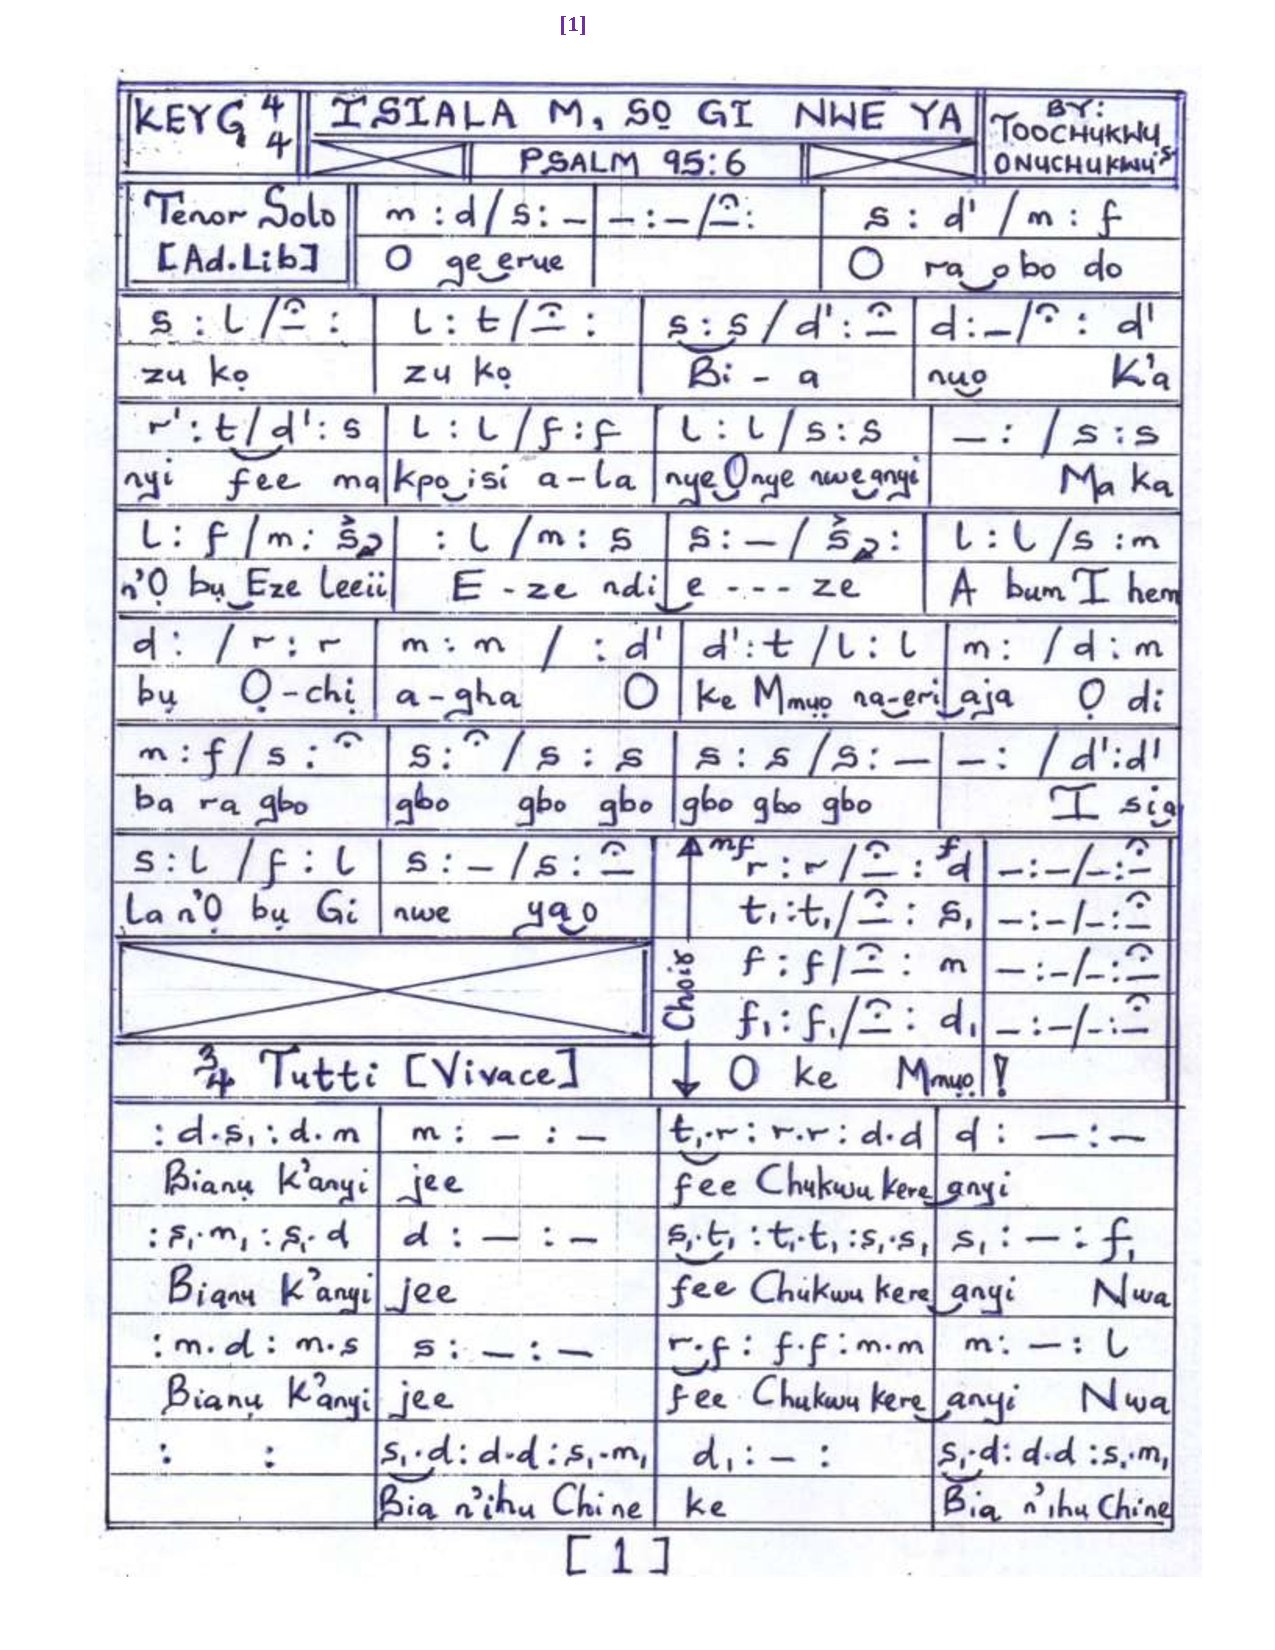 [1]
KEY G 4/4 ISIALA M, SỌ GI NWE YA BY: TOOCHUKWU ONUCHUKWU'S
PSALM 95:6
Tenor Solo [Ad.Lib]
m : d / s : – | – : – / 𝄐– : | s : d' / m : f
O ge‿erue | | O ra‿obo do
s : l / 𝄐– : | l : t / 𝄐– : | s : s / d' : 𝄐– | d : – / 𝄐 : d'
zu kọ | zu kọ | Bi - a | nuọ K'a
r' : t / d' : s | l : l / f : f | l : l / s : s | – : / s : s
nyi fee ma | kpo‿isi a-la | nye‿Onye nwe‿anyi | Ma ka
l : f / m : s | : l / m : s | s : – / s : | l : l / s : m
n'Ọ bụ‿Eze leeii | E-ze ndi‿ | e --- ze | A bum I hem
d : / r : r | m : m / : d' | d' : t / l : l | m : / d : m
bụ Ọ-chị | a-gha O | ke Mmụọ na-eri‿ | aja Ọ di
m : f / s : 𝄐 | s : 𝄐 / s : s | s : s / s : – | – : / d' : d'
ba ra gbo | gbo gbo gbo | gbo gbo gbo | I sia
s : l / f : l | s : – / s : 𝄐– | mf r : r / 𝄐– : f d | – : – / – : 𝄐–
La n'Ọ bụ Gi | nwe yạo | t₁ : t₁ / 𝄐– : s₁ | – : – / – : 𝄐–
Choir f : f / 𝄐– : m | – : – / – : 𝄐–
f₁ : f₁ / 𝄐– : d₁ | – : – / – : 𝄐–
3/4 Tutti [Vivace] O ke Mmụọ | !
: d.s₁ : d.m | m : – : – | t₁.r : r.r : d.d | d : – : –
Bianụ K'anyi | jee | fee Chukwu kere‿ | anyi
: s₁.m₁ : s₁.d | d : – : – | s₁.t₁ : t₁.t₁ : s₁.s₁ | s₁ : – : f₁
Bianụ K'anyi | jee | fee Chukwu kere‿ | anyi Nwa
: m.d : m.s | s : – : – | r.f : f.f : m.m | m : – : l
Bianụ K'anyi | jee | fee Chukwu kere‿ | anyi Nwa
: : | s₁.d : d.d : s₁.m₁ | d₁ : – : | s₁.d : d.d : s₁.m₁
Bia n'ihu Chine | ke | Bia n'ihu Chine
[1]